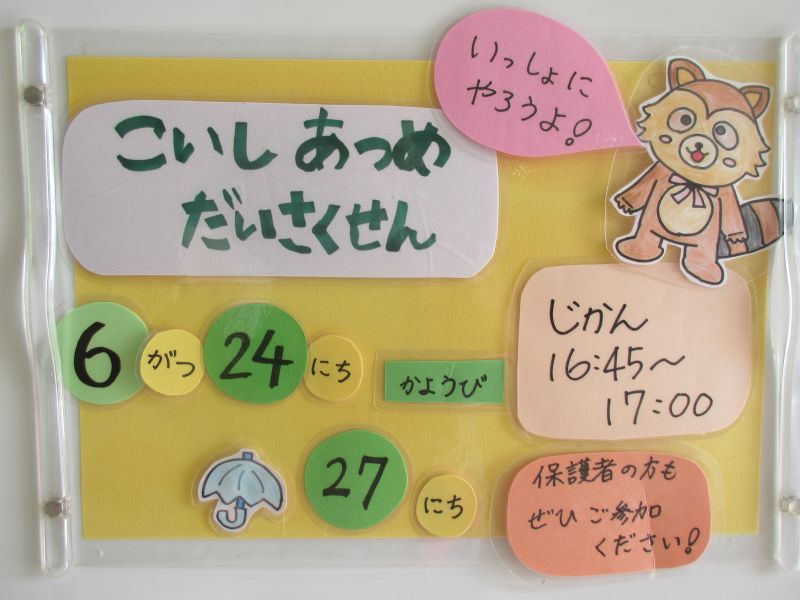 いっしょに
やろうよ!
こいし あつめ
だいさくせん
6 がつ 24 にち かようび
じかん
16:45～
17:00
27 にち
保護者の方も
ぜひ ご参加
ください!